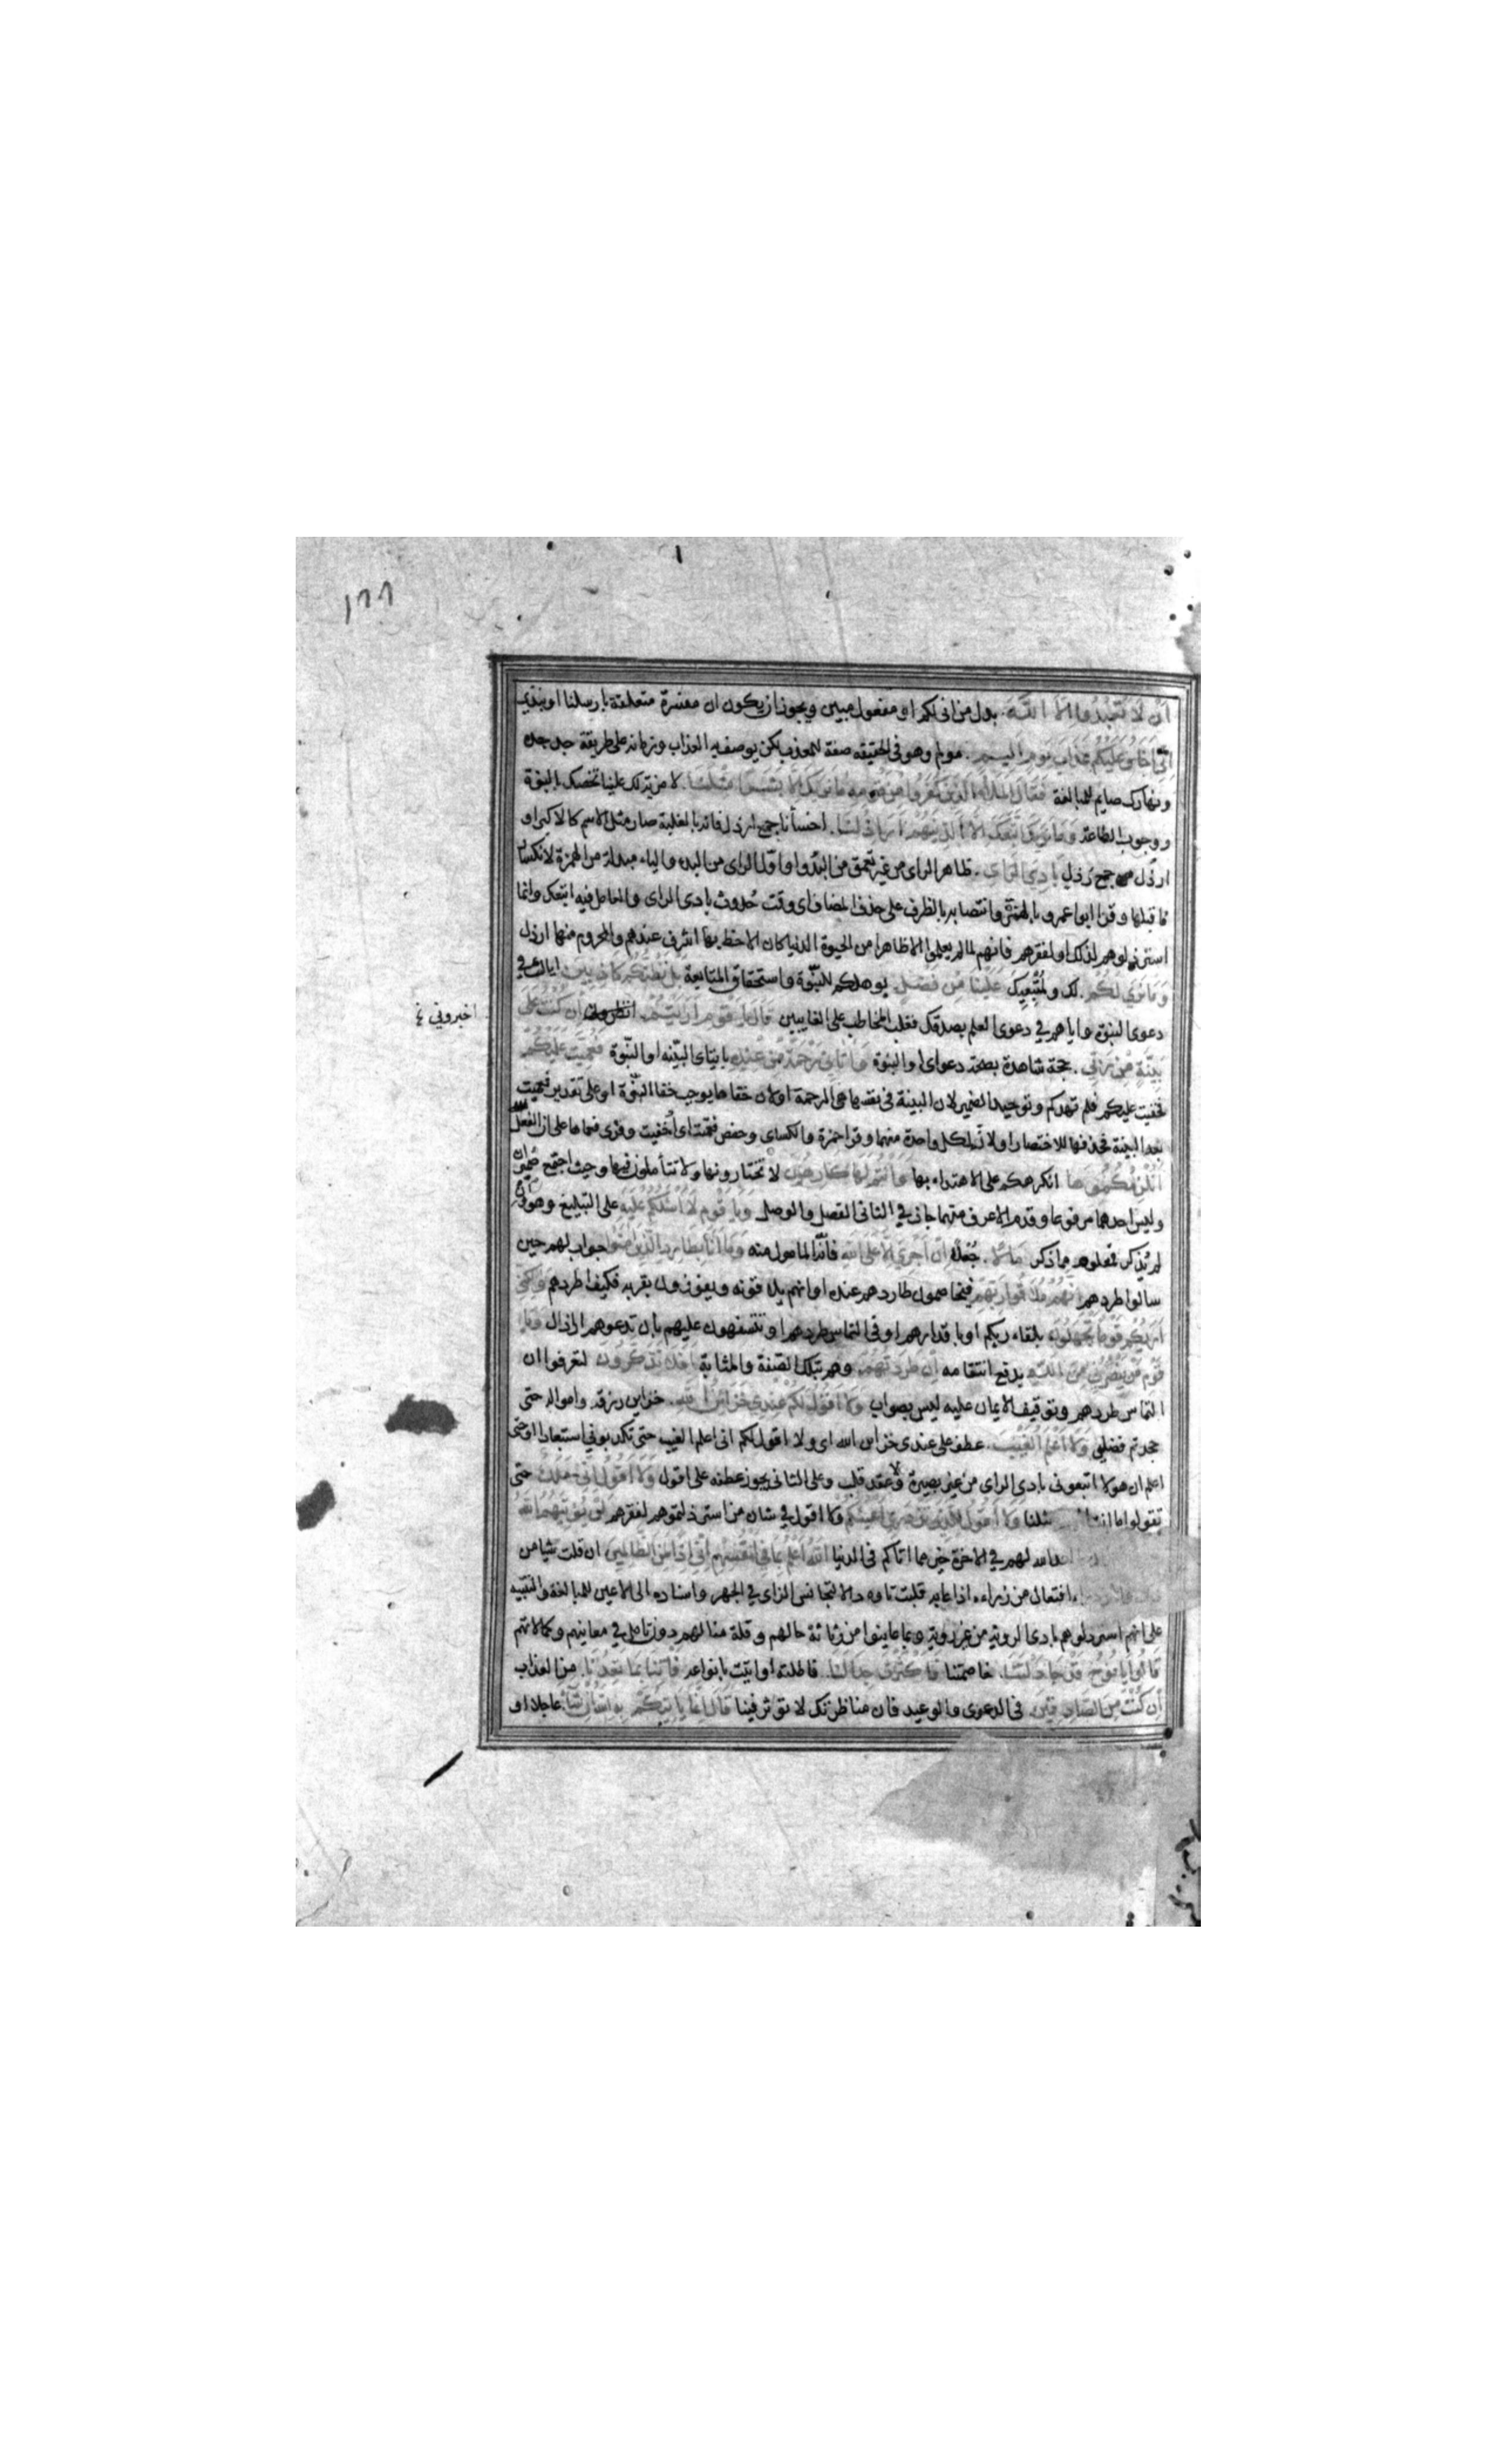 ١٦٦
ان لا تعبدوا الا الله بدل من انى لكم او مفعول مبين ويجوز ان يكون ان مفسرة متعلقة بارسلنا او بنذير
انى اخاف عليكم عذاب يوم اليم. مولم وهو فى الحقيقه صفة للمعذب لكن يوصف به العذاب وزمانه على طريقة جد جده
ونهارك صايم للمبالغة فقال الملاء الذين كفروا من قومه ما نريك الا بشرا مثلنا. لا مزية لك علينا تخصك بالنبوة
ووجوب الطاعة وما نريك اتبعك الا الذين هم اراذلنا. اخسأنا جمع ارذل فانه بالغلبة صار مثل الاسم كالاكبر او
ارذل جمع رذل بادى الراى. ظاهر الراى من غير تعمق من البدو او اول الراى من البدء والياء مبدلة من الهمزة لانكسار
ما قبلها وقرا ابو عمرو بالهمزة وانتصابه بالظرف على حذف المضاف اى وقت حدوث بادى الراى والعامل فيه اتبعك وانما
استرذلوهم لذلك او لفقرهم فانهم لما لم يعلموا الا ظاهرا من الحيوة الدنيا كان الاحظ بها اشرف عندهم والمحروم منها ارذل
وما نرى لكم. لك ولمتبعيك علينا من فضل. يوهلكم للنبوة واستحقاق المتابعة بل نظنكم كاذبين. اياك فى
دعوى النبوة واياهم فى دعوى العلم بصدقك فغلب المخاطب على الغايبين قال يا قوم ارايتم. ان كنت على
اخبرونى
بينة من ربى. حجة شاهدة بصحة دعواى او النبوة واتانى رحمة من عنده بايتاى البينه او النبوة فعميت عليكم
فخفيت عليكم فلم تهدكم وتوحيد الضمير لان البينة فى نفسها هى الرحمة او لان خفاها يوجب خفا النبوة او على تقدير فعميت
بعد البينة فحذفها للاختصار او لانه لكل واحدة منهما وقرا حمزة والكساى وحفص فعميت اى اخفيت وقرى فعماها على ان الفعل لله
انلزمكموها انكرهكم على الاهتداء بها وانتم لها كارهون لا تختارونها ولا تتأملون فيها وحيث اجتمع ضميران
وليس احدهما مرفوعا وقدم الاعرف منهما جاز فى الثانى الفصل والوصل ويا قوم لا اسئلكم عليه على التبليغ وهو وان
لم يذكر فمعلوم مما ذكر مالا. جعلا ان اجرى الا على الله فانه المامول منه وما انا بطارد الذين امنوا جواب لهم حين
سالوا طردهم انهم ملاقوا ربهم فيخاصمون طاردهم عنده او انهم يلاقونه ويفوزون بقربه فكيف اطردهم ولكنى
اريكم قوما تجهلون. بلقاء ربكم او باقدارهم او فى التماس طردهم او تتسفهون عليهم بان تدعوهم اراذل ويا
قوم من ينصرنى من الله بدفع انتقامه ان طردتهم. وهم بتلك الصفة والمثابة افلا تذكرون لتعرفوا ان
التماس طردهم وتوقيف الايمان عليه ليس بصواب ولا اقول لكم عندى خزاين الله. خزاين رزقه وامواله حتى
جحدتم فضلى ولا اعلم الغيب. عطف على عندى خزاين الله اى ولا اقول لكم انى اعلم الغيب حتى تكذبونى استبعادا او حتى
اعلم ان هولا اتبعونى بادى الراى من غير بصيرة ولا عقد قلب وعلى الثانى يجوز عطفه على اقول ولا اقول انى ملك حتى
تقولوا ما انت مثلنا ولا اقول للذين تزدرى اعينكم ولا اقول فى شان من استرذلتموهم لفقرهم لن يؤتيهم الله
لهم فى الاخرة خير مما اتاكم فى الدنيا الله اعلم بما فى انفسهم انى اذا لمن الظالمين ان قلت شيا من
افتعال من زراه اذا عابه قلبت تاوه دالا لتجانس الزاى فى الجهر واسناده الى الاعين للمبالغة والتنبيه
على انهم استرذلوهم بادى الروية من غير روية وبما عاينوا من رثاثة حالهم وقلة منالهم دون تامل فى معانيهم وكمالاتهم
قالوا يا نوح قد جادلتنا. خاصمتنا فاكثرت جدالنا. فاطلته او اتيت بانواعه فاتنا بما تعدنا. من العذاب
ان كنت من الصادقين. فى الدعوى والوعيد فان مناظرتك لا توثر فينا قال انما ياتيكم به الله ان شاء. عاجلا او